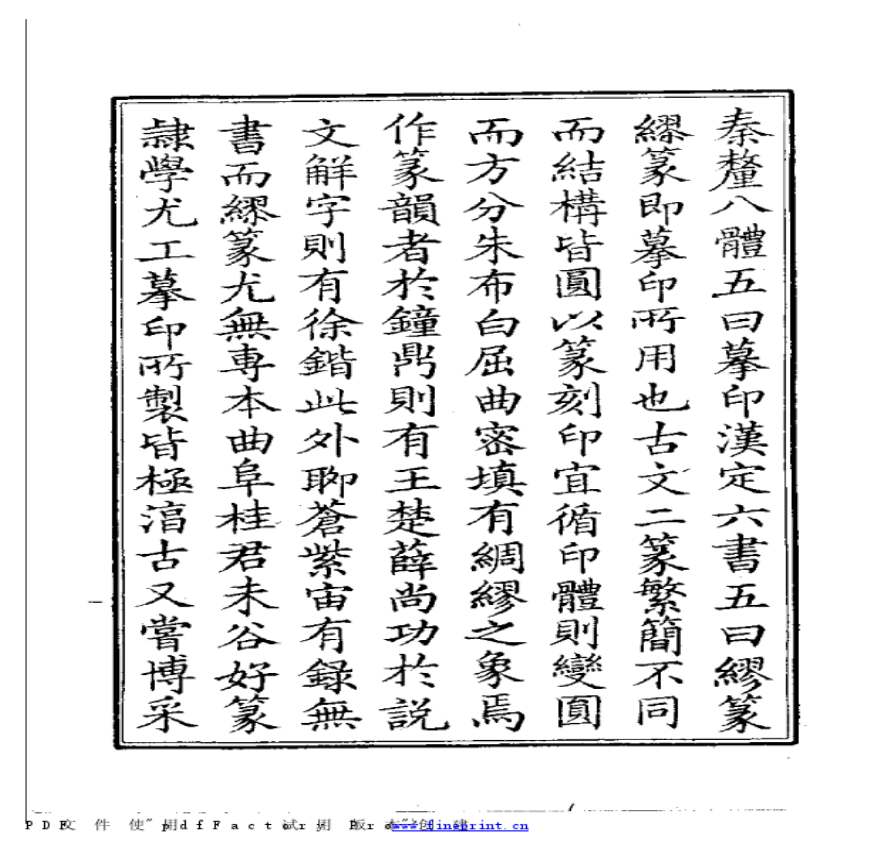 秦𨤲八體五曰摹印漢定六書五曰繆篆
繆篆即摹印所用也古文二篆繁簡不同
而結構皆圓以篆刻印宜循印體則變圓
而方分朱布白屈曲密填有綢繆之象焉
作篆韻者於鐘鼎則有王楚薛尚功於説
文解字則有徐鍇此外聊蒼紫宙有録無
書而繆篆尤無專本曲阜桂君未谷好篆
隸學尤工摹印所製皆極㴠古又嘗博采
www.fineprint.cn